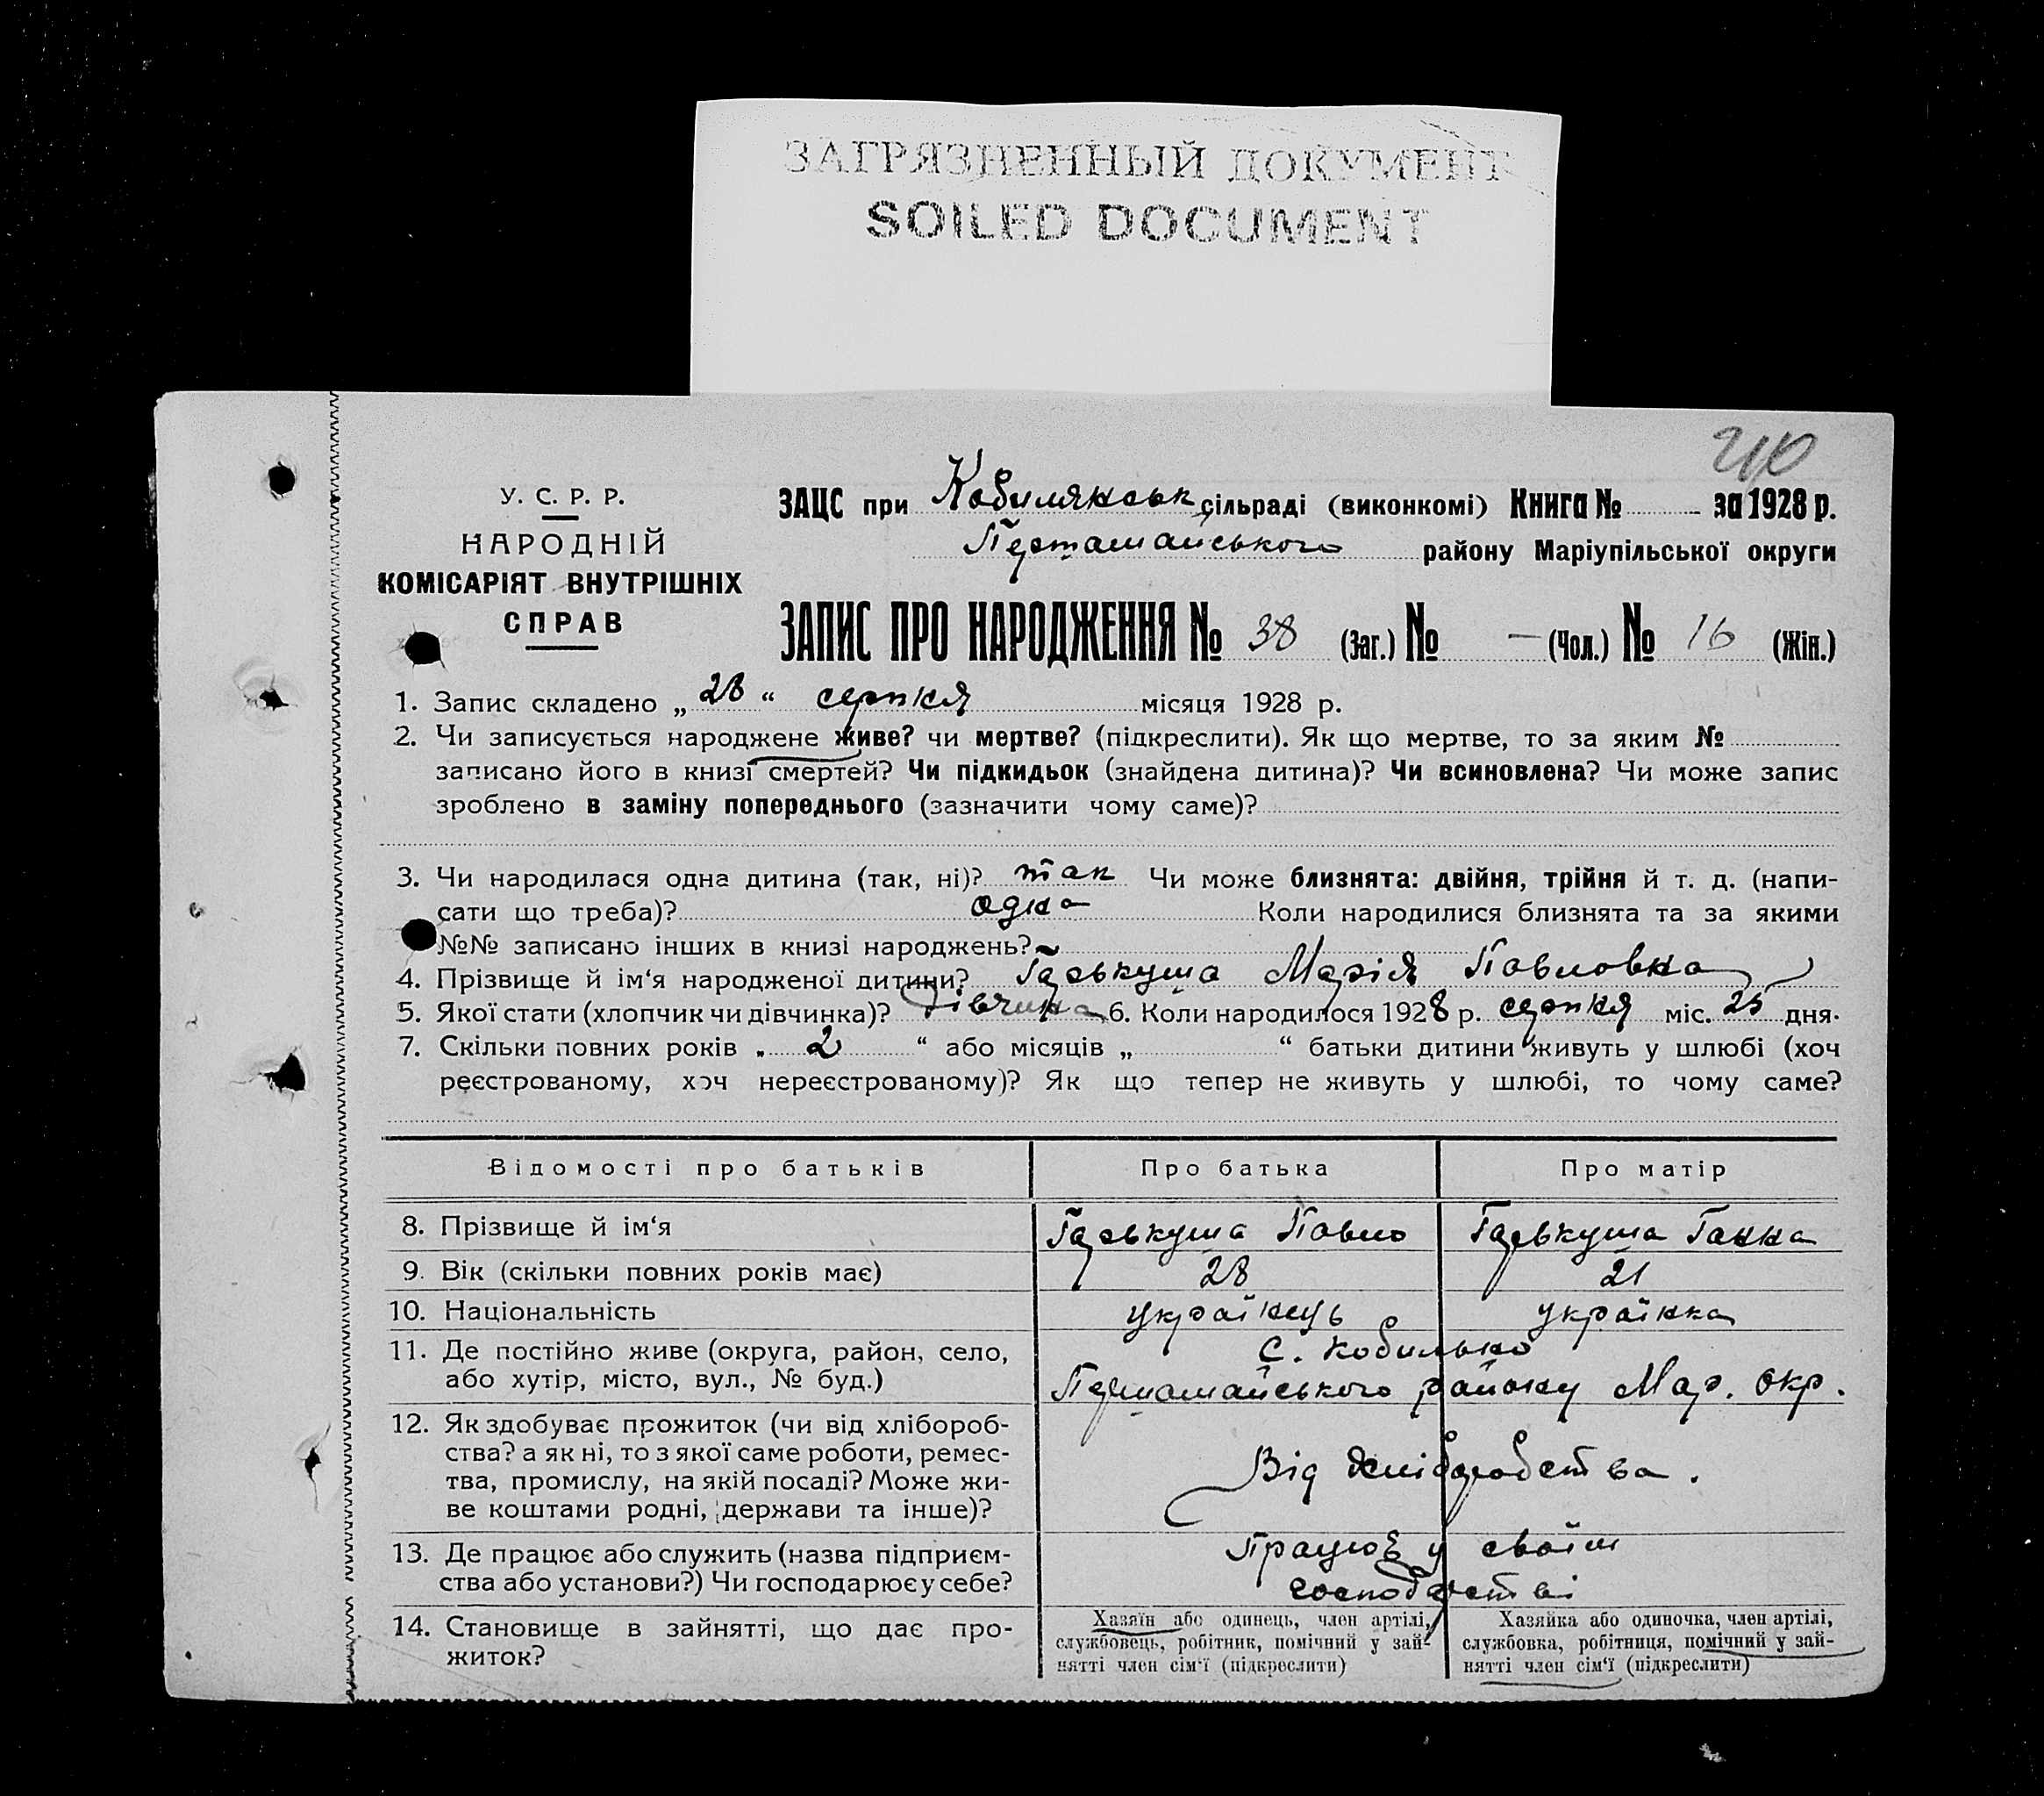 ЗАГРЯЗНЕННЫЙ ДОКУМЕНТ
SOILED DOCUMENT
210
У. С. Р. Р.
НАРОДНІЙ
КОМІСАРІЯТ ВНУТРІШНІХ
СПРАВ
ЗАЦС при Кобиляк сільраді (виконкомі) Книга № – за 1928 р.
району Маріупільської округи
ЗАПИС ПРО НАРОДЖЕННЯ № 38 (Заг.) № – (Чол.) № 16 (Жін.)
1. Запис складено „ 28 “ серпня місяця 1928 р.
2. Чи записується народжене живе? чи мертве? (підкреслити). Як що мертве, то за яким №
записано його в книзі смертей? Чи підкидьок (знайдена дитина)? Чи всиновлена? Чи може запис
зроблено в заміну попереднього (зазначити чому саме)?
3. Чи народилася одна дитина (так, ні)? так Чи може близнята: двійня, трійня й т. д. (напи-
сати що треба)? одна Коли народилися близнята та за якими
№№ записано інших в книзі народжень?
4. Прізвище й ім‘я народженої дитини? Гарькуша Марія Павловна
5. Якої стати (хлопчик чи дівчинка)? Дівчина 6. Коли народилося 1928 р. серпня міс. 25 дня.
7. Скільки повних років „ 2 “ або місяців „ “ батьки дитини живуть у шлюбі (хоч
реєстрованому, хоч нереєстрованому)? Як що тепер не живуть у шлюбі, то чому саме?
Відомості про батьків Про батька Про матір
8. Прізвище й ім‘я Гарькуша Павло Гарькуша Ганна
9. Вік (скільки повних років має) 28 21
10. Національність українець українка
11. Де постійно живе (округа, район, село, с.
або хутір, місто, вул., № буд.) району Мар. окр.
12. Як здобуває прожиток (чи від хлібороб-
ства? а як ні, то з якої саме роботи, ремес- Від хліборобства.
тва, промислу, на якій посаді? Може жи-
ве коштами родні, держави та інше)?
13. Де працює або служить (назва підприєм- Працює у своїм
ства або установи?) Чи господарює у себе? господарстві
14. Становище в зайнятті, що дає про-
житок?
Хазяїн або одинець, член артілі,
службовець, робітник, помічний у зай-
нятті член сім‘ї (підкреслити)
Хазяйка або одиночка, член артілі,
службовка, робітниця, помічний у зай-
нятті член сім‘ї (підкреслити)